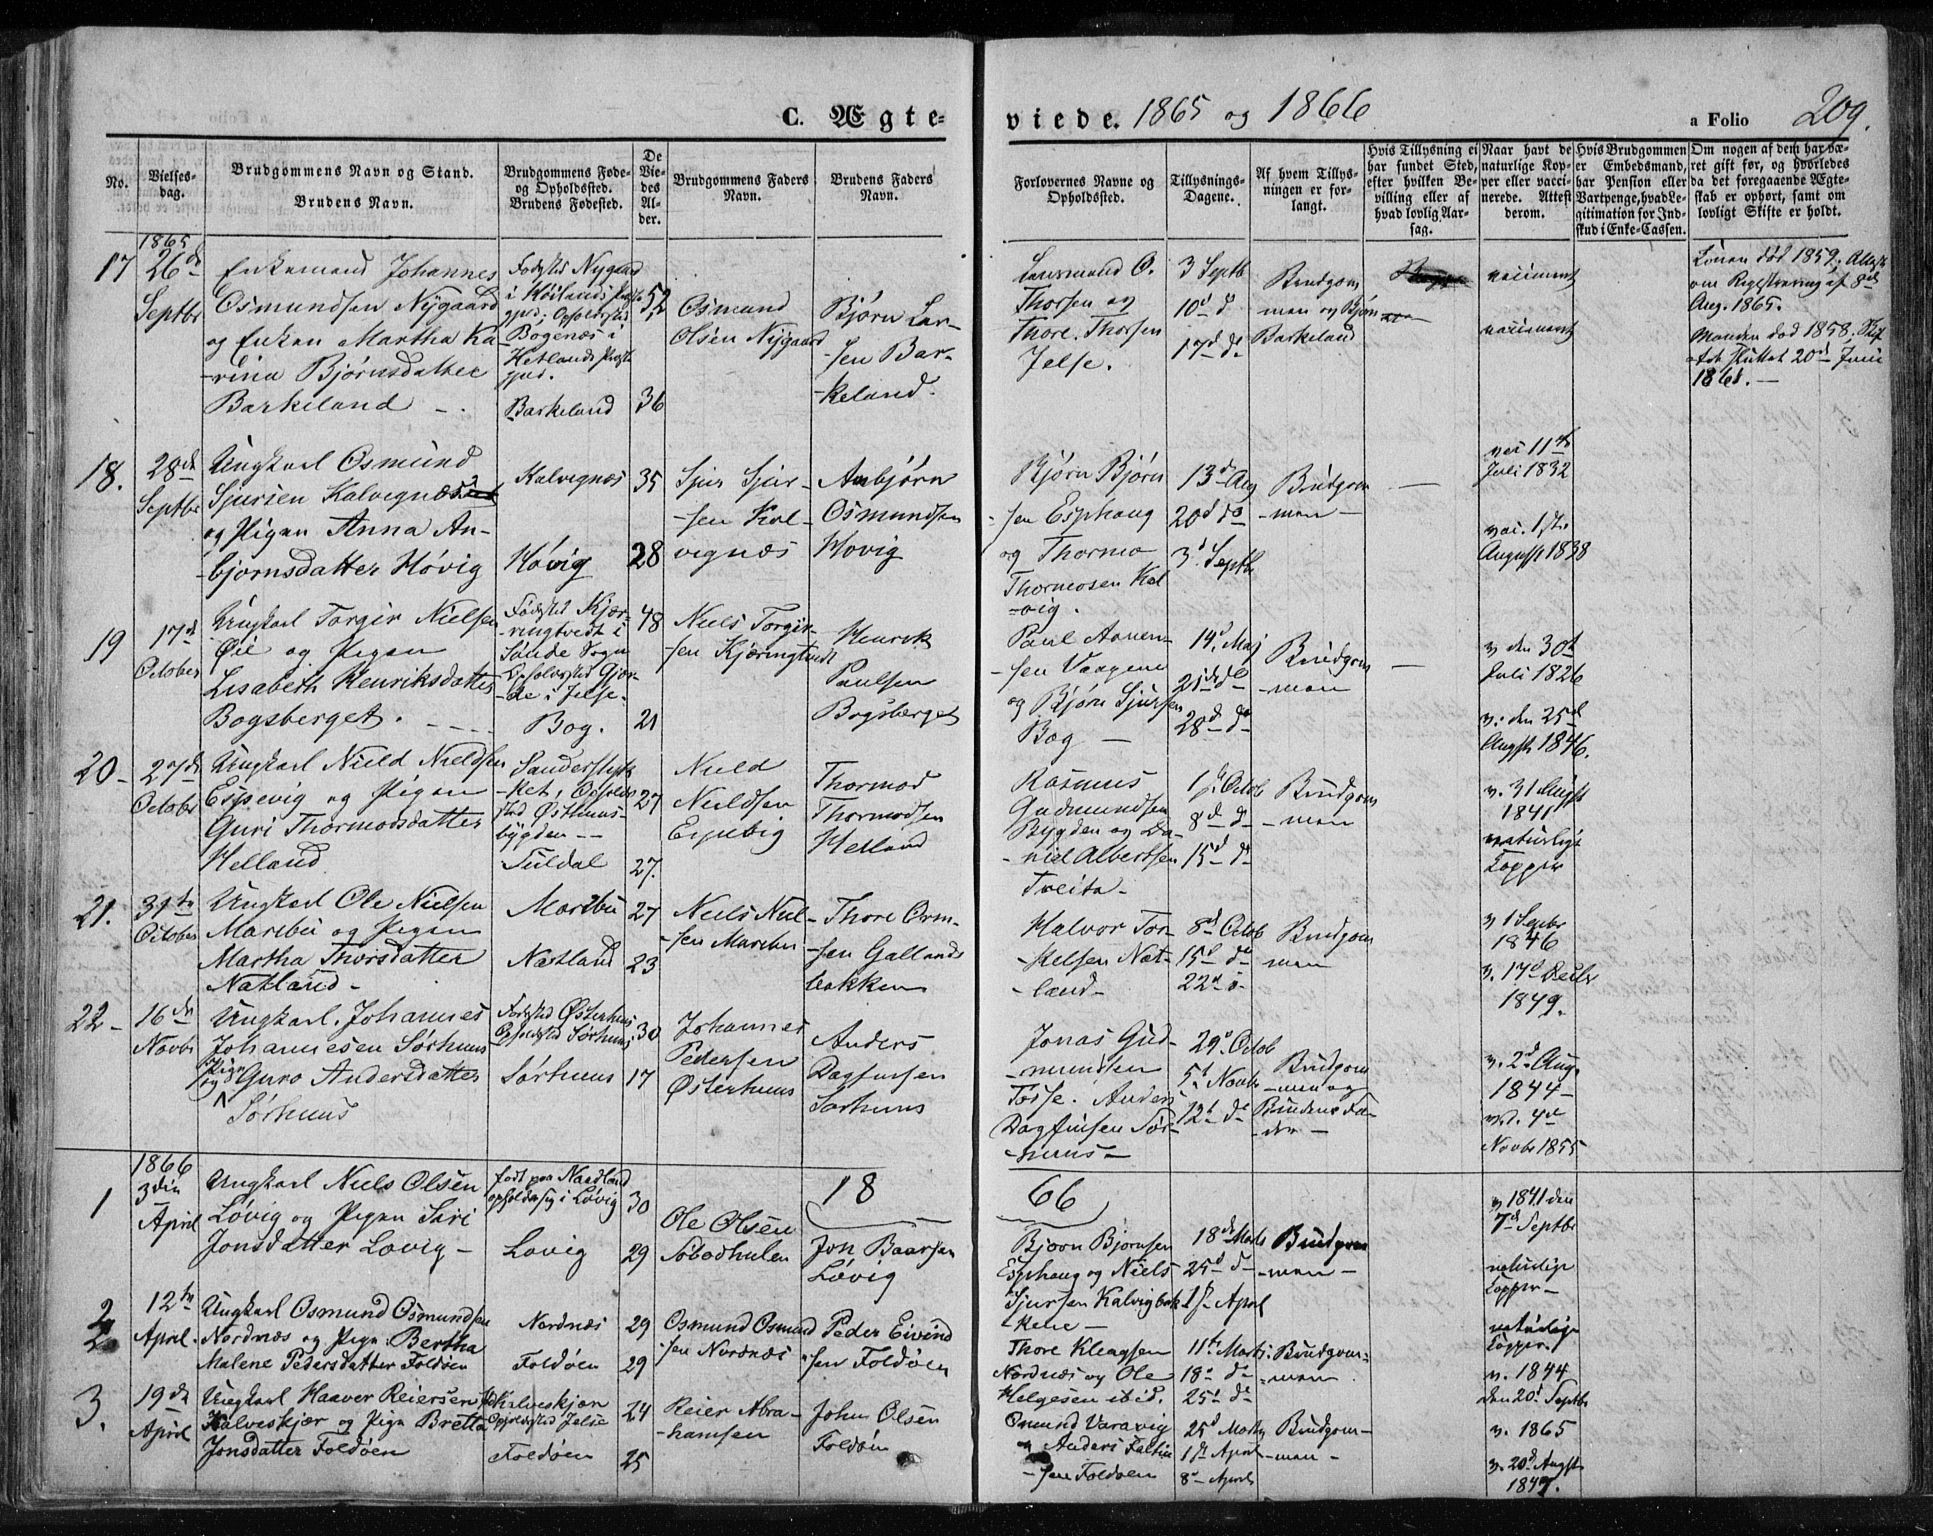 C. Ægte-
viede. 1865 og 1866
a Folio 209.
No.
Vielses-
dag.
Brudgommens Navn og Stand.
Brudens Navn.
Brudgommens Føde-
og Opholdssted.
Brudens Fødested.
De
Vie-
des
Al-
der.
Brudgommens Faders
Navn.
Brudens Faders
Navn.
Forlovernes Navne og
Opholdssted.
Tillysnings-
Dagene.
Af hvem Tillys-
ningen er for-
langt.
Hvis Tillysning ei
har fundet Sted,
efter hvilken Be-
villing eller af
hvad lovlig Aar-
sag.
Naar havt de
naturlige Kop-
per eller vacci-
nerede. Attest
derom.
Hvis Brudgommen
er Embedsmand,
har Pension eller
Vartpenge, hvad Le-
gitimation for Ind-
skud i Enke-Cassen.
Om nogen af dem har væ-
ret gift før, og hvorledes
da det foregaaende Ægte-
skab er ophørt, samt om
lovligt Skifte er holdt.
1865
17
26de
Septbr
Enkemand Johannes
Osmundsen Nygaard
og Enken Martha Ka-
-rina Bjørnsdatter
Barkeland
Fødested Nygaard
Bogenæs i
Hetlands Præst
gjed.
Barkeland
52
36
Osmund
Olsen Nygaard
Bjørn Lar-
-sen Bar-
-keland.
Lensmand O.
Thorsen og
Thore Thorsen
Jelse.
3 Septb
10d do
17d do
Brudgom
man og Bjørn
Barkeland
vaccineret
vaccineret
Konen død 1859, Attest
om Registrering af 8de
Aug. 1865.
Manden død 1858, Skif
-te sluttet 20d Juni
1861.
18.
28de
Septbr
Ungkarl Osmund
Sjursen Kalvignæs
og Pigen Anna An-
-bjørnsdatter Høvig
Kalvignæs
Høvig
35
28
Sjur Sjur-
-sen Kal-
vignæs
Anbjørn
Osmundsen
Høvig
Bjørn Bjørn
-sen Esphaug
og Thormo
Thormosen Kal
-vig.
13d Aug
20d do
3d Septb
Brudgom
-man -
vac 11te
Juli 1832
vac. 1ste
August 1838
19
17de
October
Ungkarl Torgir Nielsen
Øie og Pigen
Lisabeth Henriksdatter
Bogsberget.
Fødested Kjær-
-ringtvedt i
Sands Sogn
Opholdssted Gjer-
-de i Jelse.
Bog.
48
21
Niels Torgir-
-sen Kjæringtvedt
Henrik
Paulsen
Bogsberget
Paul Aanen-
-sen Vaagene
og Bjørn Sjursen
Bog
14d Maj
21de do
28d do
Brudgom
-man
v den 30te
Juli 1826
v. den 25d
Augst 1846.
20
27de
October
Ungkarl Nield Nieldsen
Espevig og Pigen
Guri Thormodsdatter
Helland
-ket, Ophold
sted Østhuus-
bygden
Suldal
27
27.
Nield
Nieldsen
Espevig
Thormod
Thormodsen
Helland
Rasmus
Gudmundsen
Bygden og Da-
-niel Albertsen
Tveita
1ste Octob
8d do
15d do
Brudgom
-man
v. 31 Augst
1841
naturlige
Kopper
21.
31te
October
Ungkarl Ole Nielsen
Marebu og Pigen
Martha Thorsdatter
Natland
Marebu
Natland
27
23
Niels Niel-
-sen Marebu
Thore Orm-
-sen Gallands
bakken
Halvor Tor-
-kelsen Nat-
-land
8d Octob
15d do
22d do
Brudgom
man
v 1 Septbr
1846
v. 17d Decbr
1849.
22
16de
Novbr
Ungkarl Johannes
Johannesen Sørhuus
og Pigen Guro Andersdatter
Sørhuus
Fødested Østerhuus
Opholdssted Sørhuus
Sørhuus
30
17
Johannes
Pedersen
Østerhuus
Anders
Dagfinsen
Sørhuus
Jonas Gud-
-mundsen
Fosse. Anders
Dagfinsen Sør-
-huus
29d Octob
5d Novbr
12d do
Brudgom
-men og
Brudens Fa-
-der
v. 2d Aug.
1844
v. 4de
Novbr 1855
1866
1
3die
April
Ungkarl Niels Olsen
Løvig og Pigen Siri
Jonsdatter Løvig
født paa Nordland
opholder sig i Løvig
Løvig
30
29
Ole Olsen
18
Jon Baarsen
Løvig
66
Bjørn Bjørnsen
Esphaug og Niels
Sjursen Kalvigbak
kene
18de Marts
25d do
1ste April
Brudgom
-man
v 1841 den
7de Septbr
naturlige
Kopper
2
12te
April.
Ungkarl Osmund Osmundsen
Nordnæs og Pigen Bertha
Malene Pedersdatter Foldøen
Nordnæs
Foldøen
29
29
Osmund Osmund
-sen Nordnæs
Peder Eivind
-sen Foldøen
Thore Kleagsen
Nordnæs og Ole
Helgesen ibid.
11te Marts
18d do
25d do
Brudgom-
-man
naturlige
Kopper.
v. 1844
den 20d Septbr
3.
19de
April
Ungkarl Haaver Reiersen
Kalveskjær og Pigen Bretta
Jonsdatter Foldøen
Kalveskjær
Opholdssted Jelse
Foldøen
24
25
Reier Abra-
-hamsen
John Olsen
Foldøen
Osmund Varavig
og Anders Faltin
-sen Foldøen
25d Marts
1ste April
8d April
Brudgom-
-man -
v. 1865
v. 20d Augst
1847.